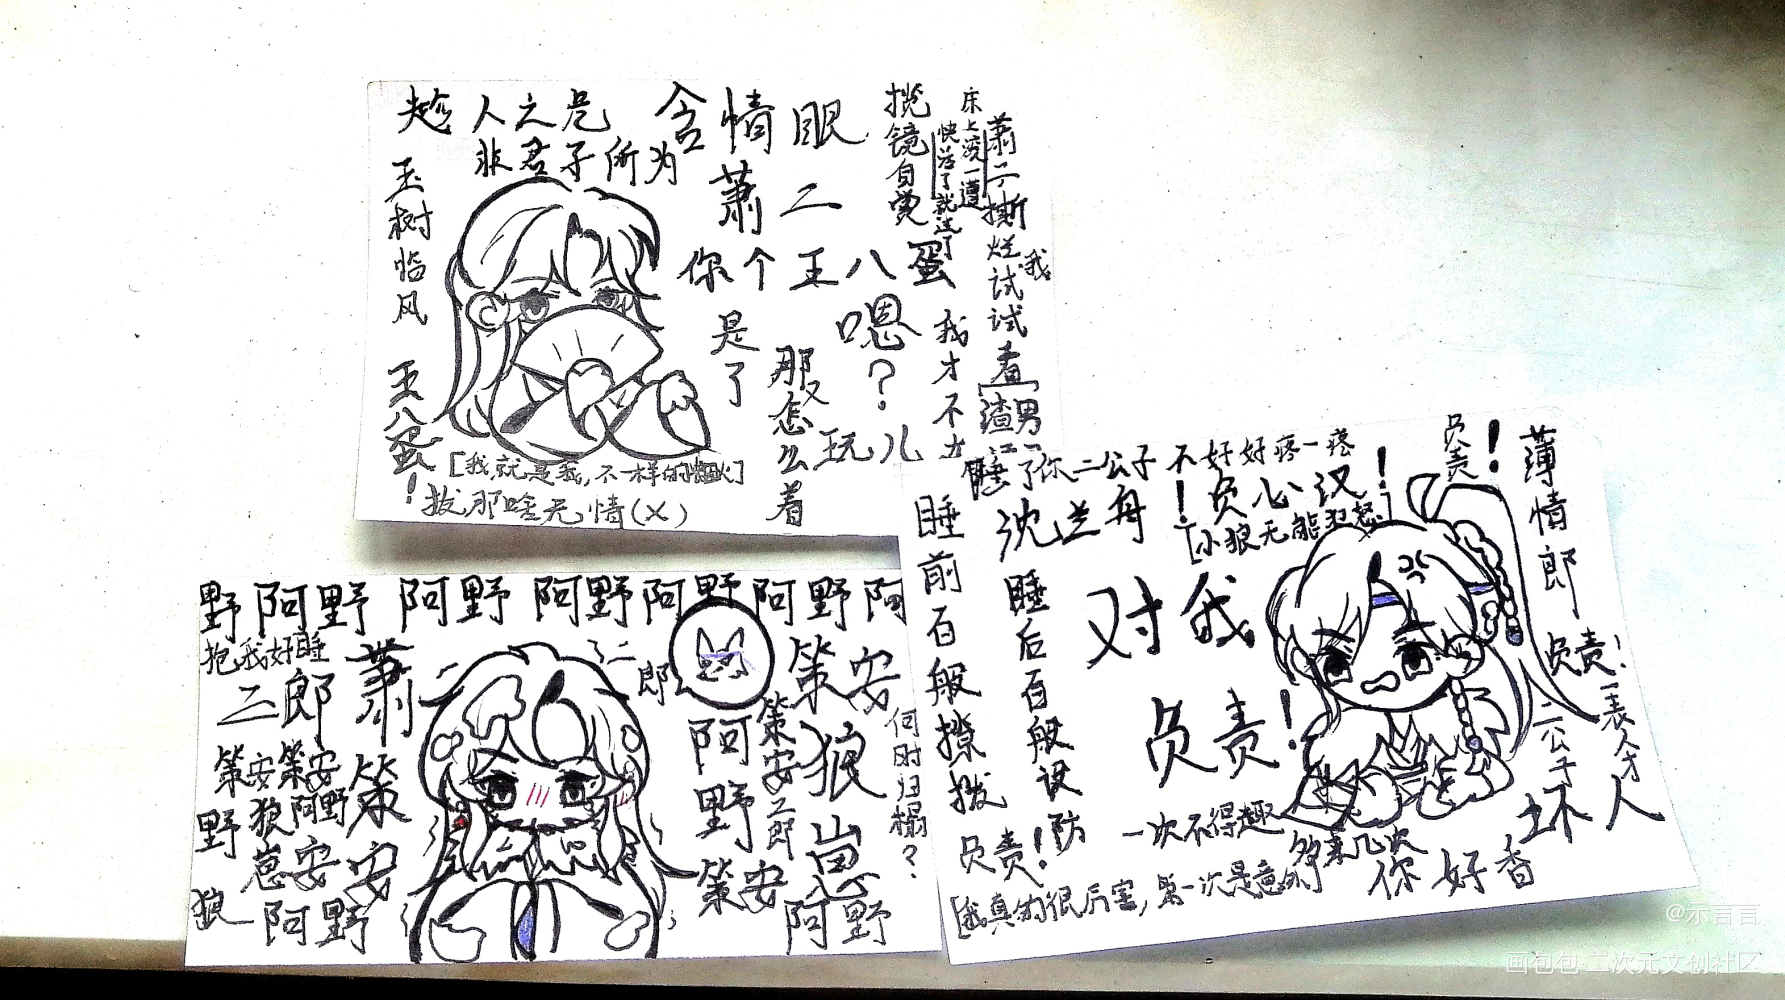 趁人之危
非君子所为
含情眼
萧二
你个王八蛋
玉树临风
王八蛋！
揽镜自赏
床上滚一遭
快活了就选了
萧二
撕烂试试看
我
是了
那又怎么着
嗯？
玩儿
我才不
渣男
[我就是我，不一样的烟火]
拔那啥无情(×)
野阿野 阿野 阿野阿野阿野阿
抱我好睡
二郎
萧策安
策安策安
狼阿野
崽安
野
狼
阿野
二郎
策安
狼崽
阿野
策安
二郎
策安
阿野
何时归榻？
睡了你二公子不好好疼一疼
沈兰舟！负心汉！
[小狼无能狂怒]
负责！
薄情郎
睡前百般撩拨
睡后百般设防
对我
负责！
负责！
负责！
一表人才
二公子
坏人
一次不得趣
够来几次
你好香
[我真的很厉害，第一次是意外]
@示言言
画包包·二次元文创社区